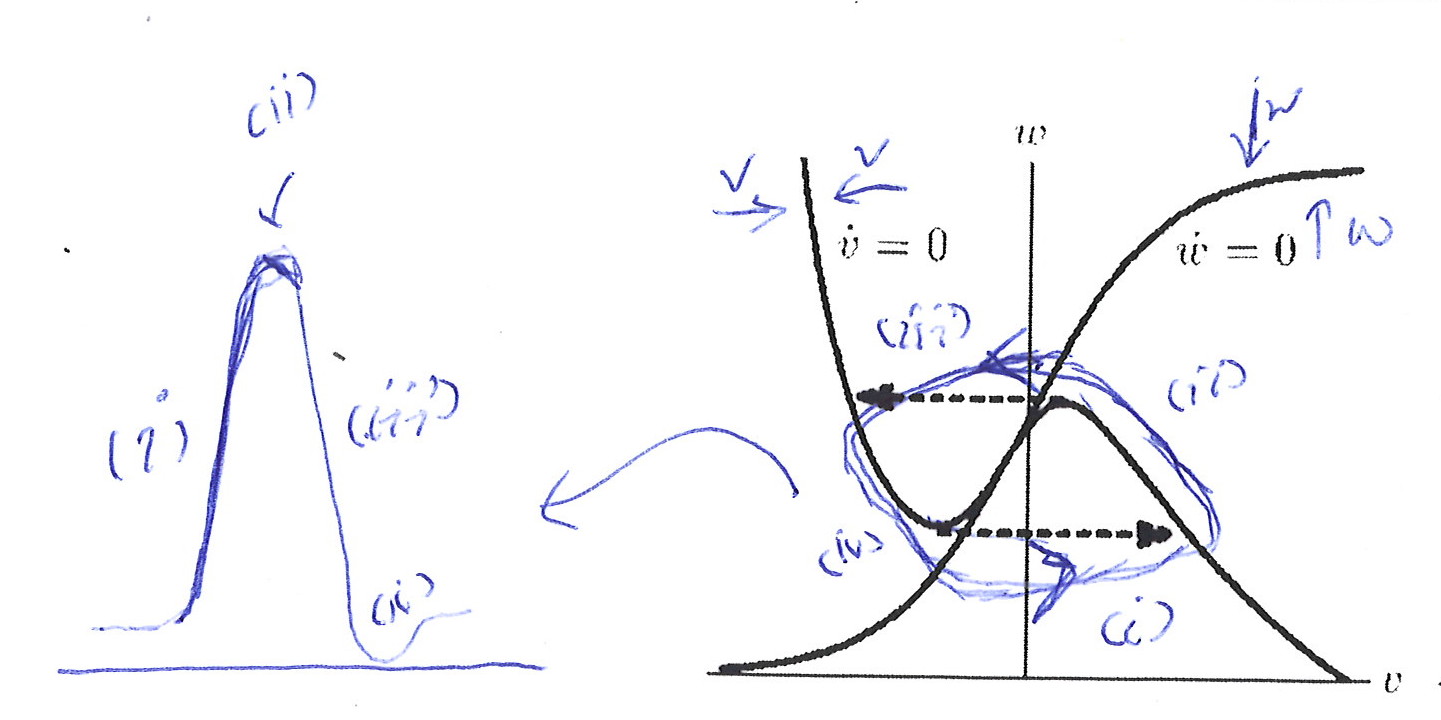 (ii)
(i)
(iii)
(iv)
w
v
v
w
v̇ = 0
ẇ = 0
w
(iii)
(ii)
(iv)
(i)
v